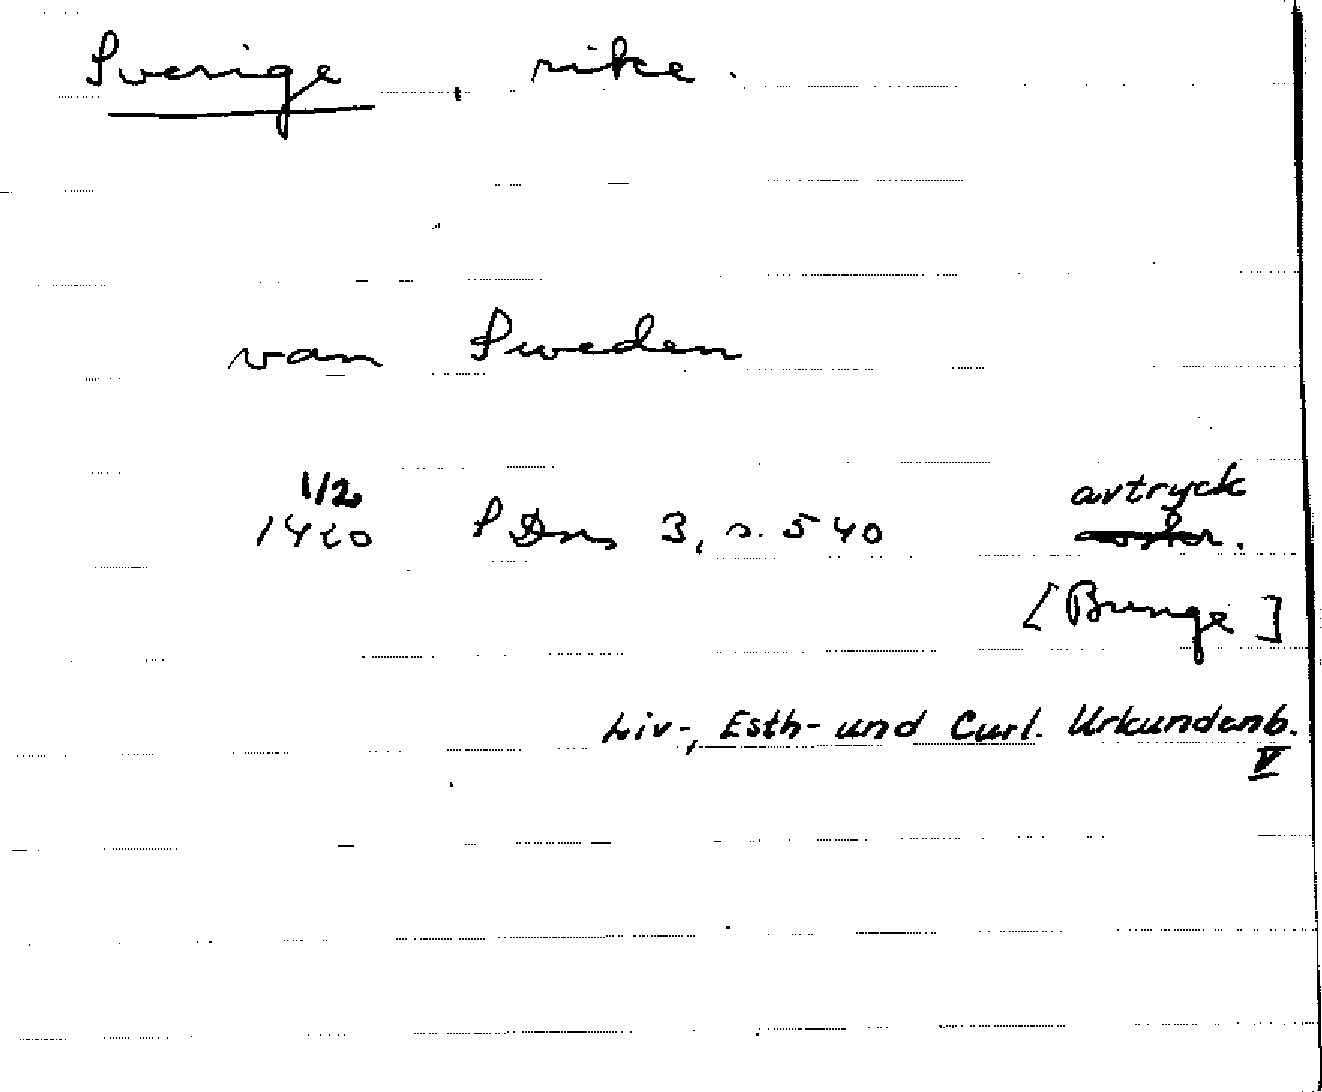 Sverige, rike.
van Sweden
1/2
1420 SDns 3, s. 540 avtryck
[Bunge]
Liv-, Esth- und Curl. Urkundenb.
V